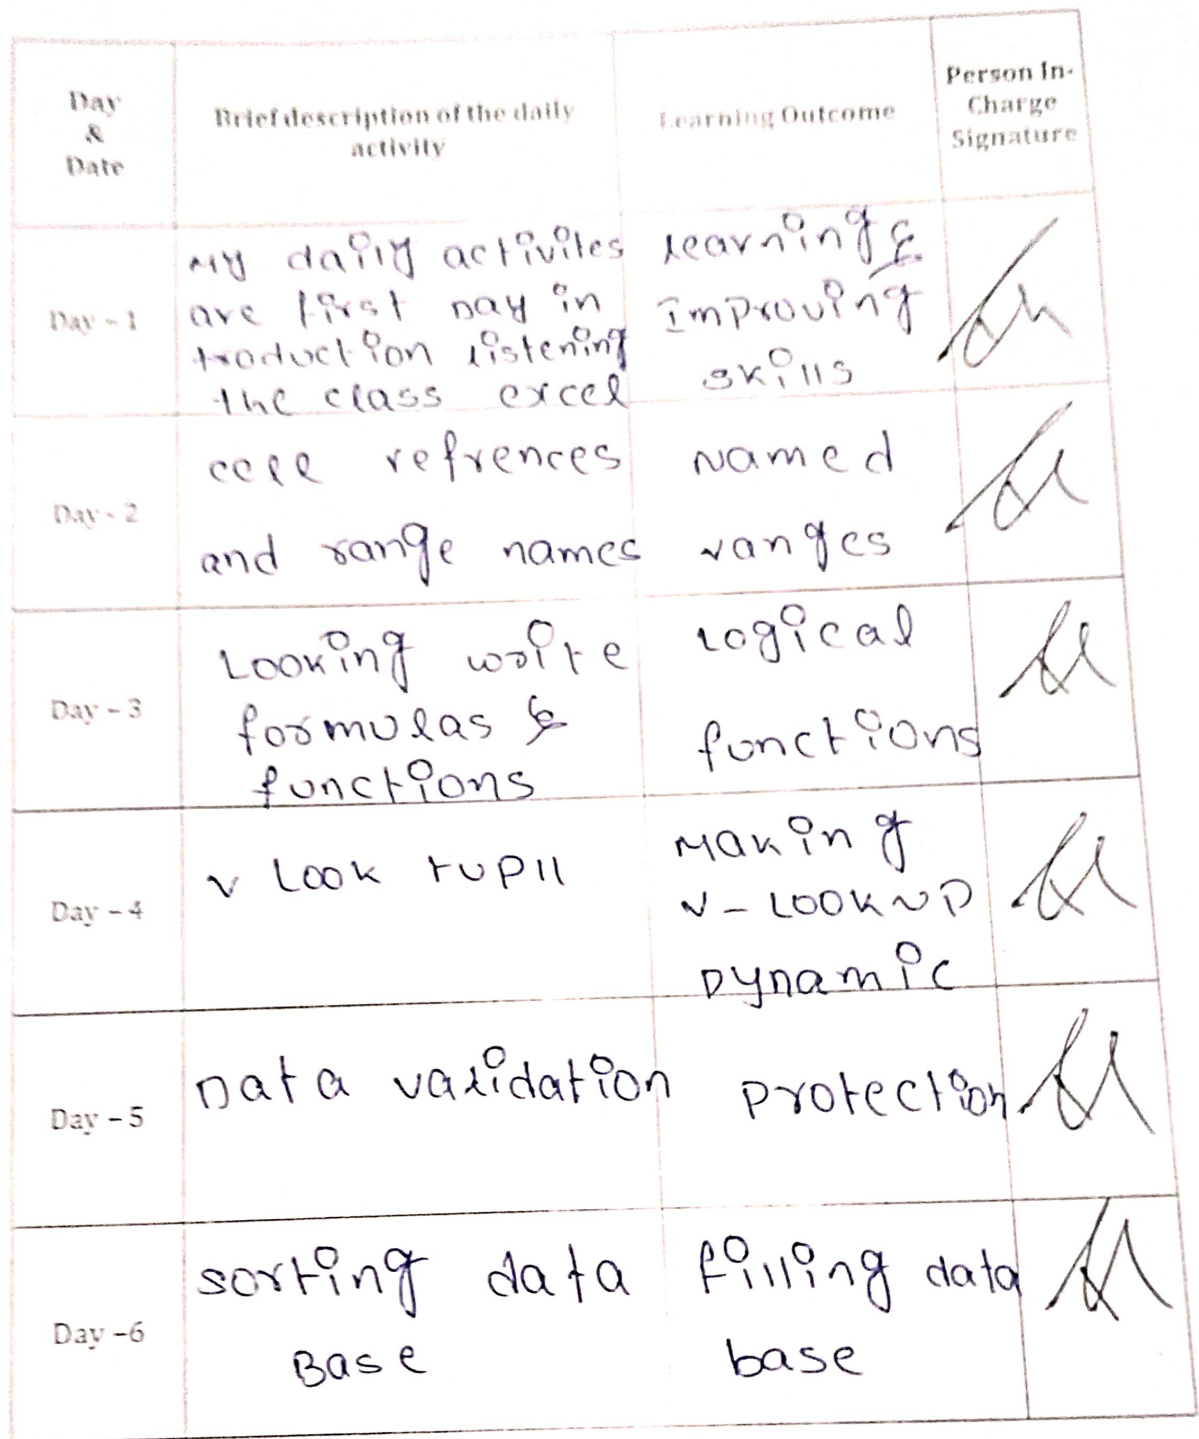 Day
&
Date
Brief description of the daily
activity
Learning Outcome
Person In-
Charge
Signature
Day - 1
My daily activiles
are first Day in
troduction listening
the class excel
learning &
Improving
skills
Day - 2
cell refrences
and range names
Named
ranges
Day - 3
Looking write
formulas &
functions
Logical
functions
Day - 4
v Look
Making
V - LOOKUP
Dynamic
Day - 5
Data validation
protection
Day -6
sorting data
Base
filling data
base